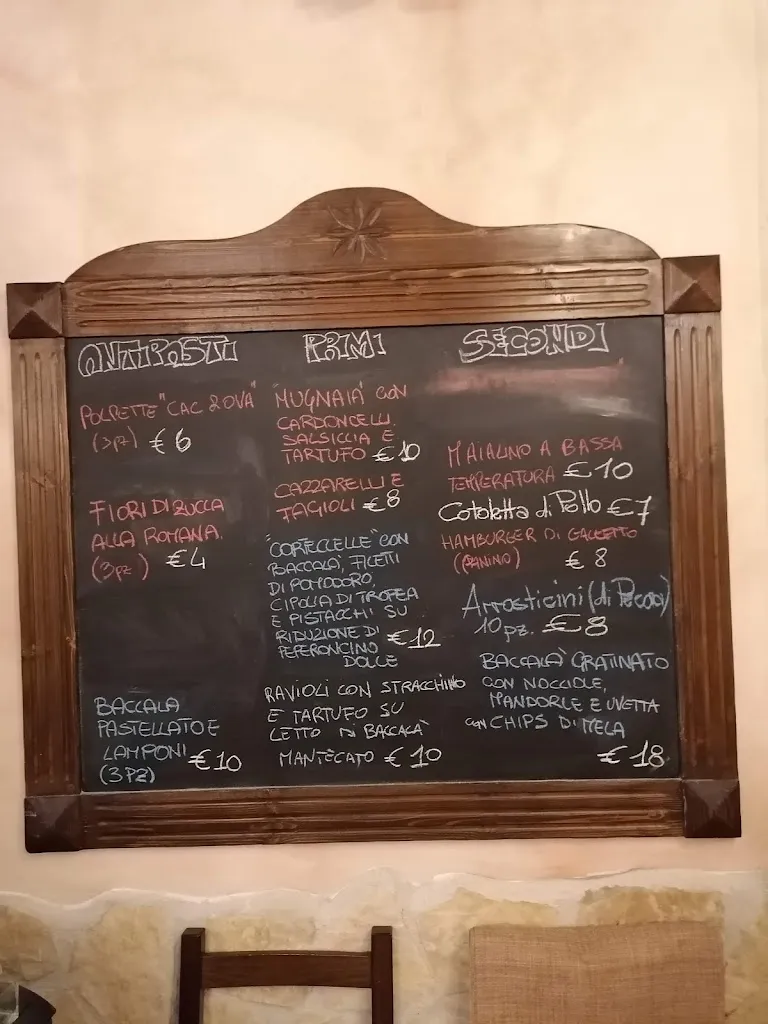 ANTIPASTI
POLPETTE "CAC & OVA"
(3pz) € 6
FIORI DI ZUCCA
ALLA ROMANA
(3pz) € 4
BACCALA
PASTELLATO E
LAMPONI € 10
(3 PZ)
PRIMI
"MUGNAIA" CON
CARDONCELLI,
SALSICCIA E
TARTUFO € 10
CAZZARELLI E
FAGIOLI € 8
"CORTECCELLE" CON
BACCALA, FILETTI
DI POMODORO,
CIPOLLA DI TROPEA
E PISTACCHI SU
RIDUZIONE DI
PEPERONCINO € 12
DOLCE
RAVIOLI CON STRACCHINO
E TARTUFO SU
LETTO DI BACCALA'
MANTECATO € 10
SECONDI
MAIALINO A BASSA
TEMPERATURA € 10
Cotoletta di Pollo € 7
HAMBURGER DI GALLETTO
(PANINO) € 8
Arrosticini (di Pecora)
10 pz. € 8
BACCALA' GRATINATO
CON NOCCIOLE,
MANDORLE E UVETTA
con CHIPS DI MELA
€ 18